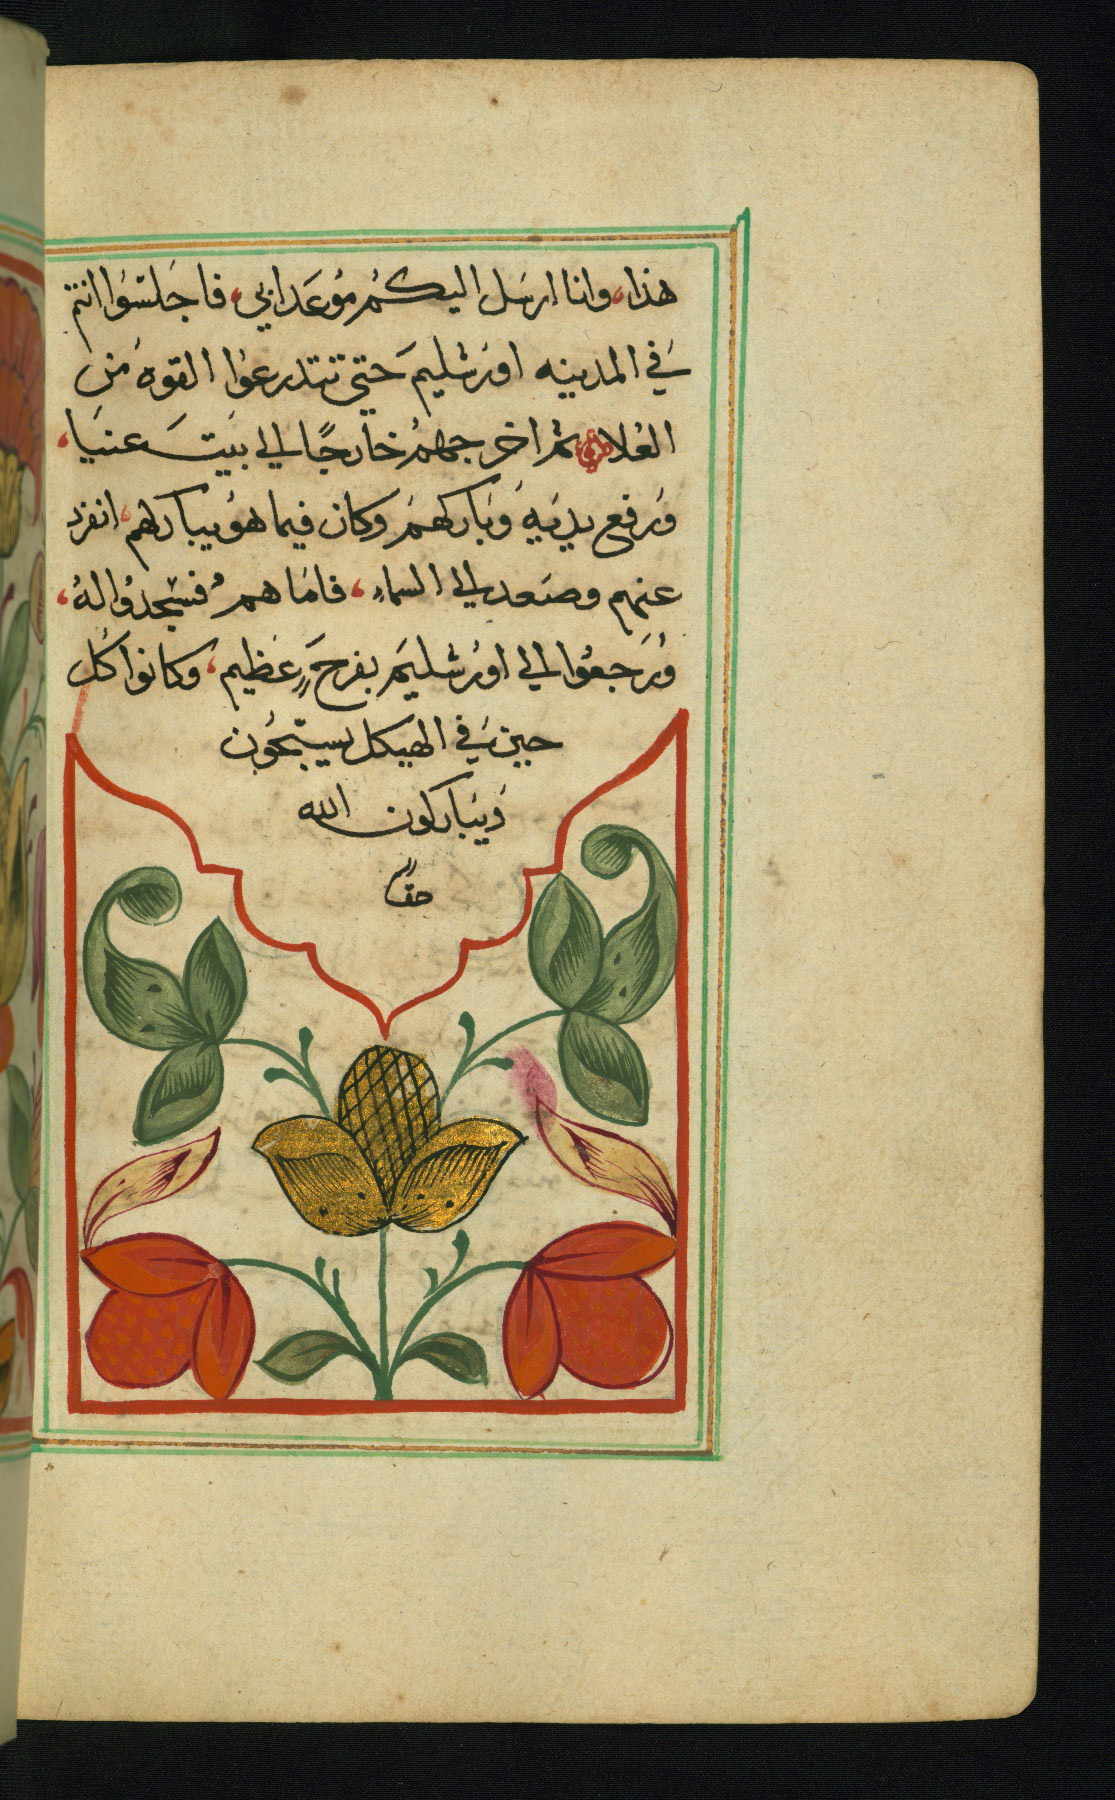 هذا، وانا ارسل اليكُم مُوعَد ابي، فاجَلسُوا انتم
فَي المدينه اورشليم حَتي تتدرعوُا القوه من
العُلا ثم اخرجهمُ خارجًا الي بَيتَ عنيَا،
وَرفع يديَهِ وَبَاركهمَ وكان فيما هوُ يباركهم، انفرد
عنهم وصَعد الي السماءِ، فامَا همُ فسَجدُوا لهُ،
وُرَجعوُا الي اورُشليَم بفرحَ عَظيم، وكانوا كُل
حين فَي الهيكل يسبّحُون
وَيبَاركون الله
حقاً